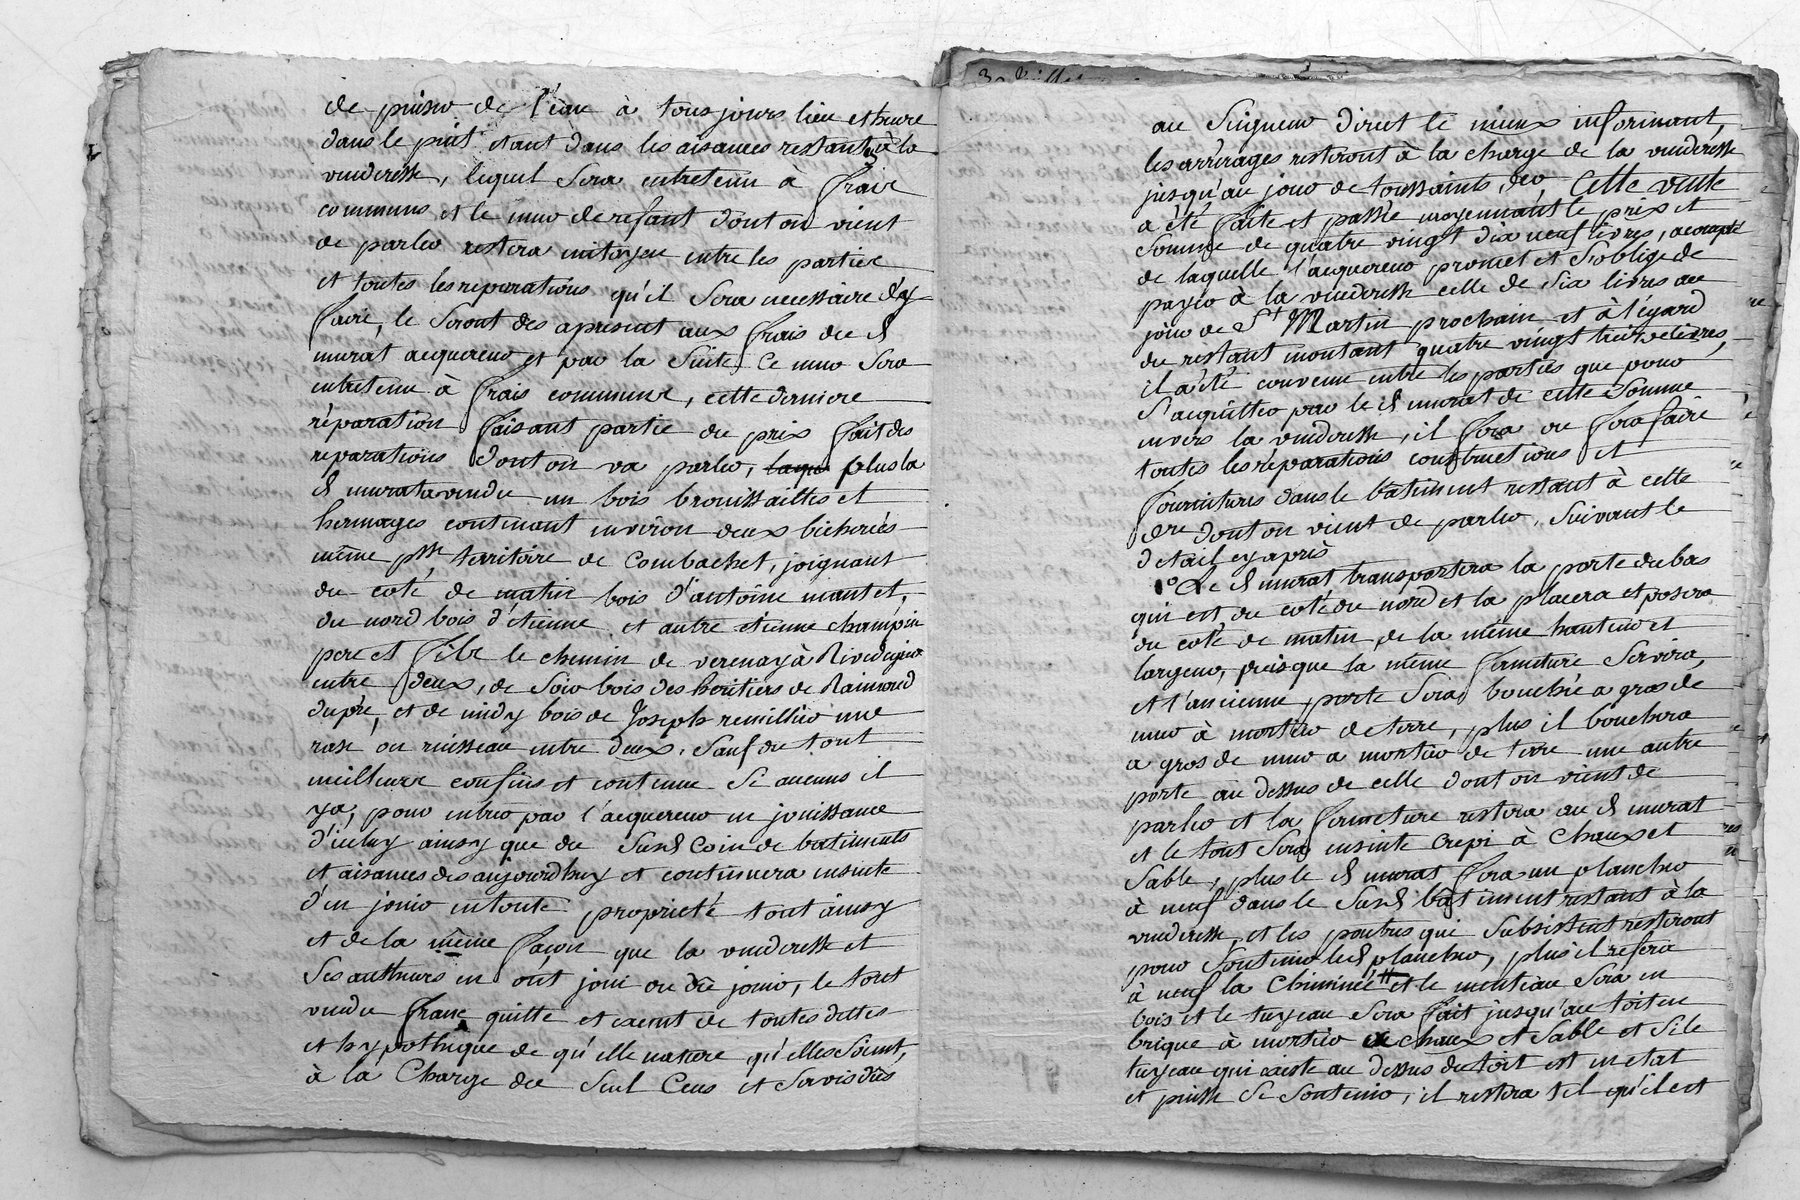 de puiser de l'eau à tous jours lieu et heure
dans le puit etant dans les aisances restant à la
venderesse, lequel sera entretenu à fraix
communs et le mur de refant dont on vient
de parler restera mitoyen entre les parties
et toutes les reparations qu'il sera necessaire d'y
faire, le seront des apresent aux frais du d
murat acquereur et par la suite ce mur sera
entretenu à frais communs, cette derniere
réparation faisant partie du prix fait des
reparations dont on va parler, plus la
d murat a vendu un bois brouissailles et
hermages contenant environ deux bicherées
même psse territoire de Combachet, joignant
du coté de matin bois d'antoine mantet,
du nord bois d'étienne et autre etienne champin
pere et fils le chemin de verenay à Rivedegier
entre deux, de soir bois des heritiers de Raimond
dupré, et de midy bois de Joseph remillier une
rase ou ruisseau entre deux, sauf du tout
meilleurs confins et contenue si aucuns il
ya, pour entrer par l'acquereur en jouissance
d'iceluy ainsy que du susd coin de batiments
et aisances des aujourdhuy et continuera ensuite
d'en jouir en toute proprieté tout ainsy
et de la même façon que la venderesse et
ses autheurs en ont joui ou dû jouir, le tout
vendu franc quitte et exemt de toutes dettes
et hypotheque de qu'elle nature qu'elles soient,
à la Charge du seul Cens et servis dûs
au Seigneur direct le mieux informant,
les arrérages resteront à la charge de la venderesse
jusqu'au jour de toussaints der, Cette vente
a été faite et passée moyennant le prix et
somme de quatre vingt dix neuf livres, acompte
de laquelle l'acquereur promet et s'oblige de
payer à la venderesse celle de six livres au
jour de St Martin prochain et à l'égard
du restant montant quatre vingt treize livres,
il a été convenu entre les parties que pour
s'acquitter par le d murat de cette somme
envers la venderesse, il fera ou fera faire
toutes les réparations constructions et
fournitures dans le bâtiment restant à cette
dre dont on vient de parler, suivant le
detail cy après
1° Le d murat transportera la porte du bas
qui est du coté du nord et la placera et posera
du coté de matin de la même hauteur et
largeur, puisque la même fermeture servira,
et l'ancienne porte sera bouchée a gros de
mur à mortier de terre, plus il bouchera
a gros de mur a mortier de terre une autre
porte au dessus de celle dont on vient de
parler et la fermeture restera au d murat
et le tout sera ensuite crepi à chaux et
sable, plus le d murat fera un plancher
à neuf dans le susd bâtiment restant à la
venderesse, et les poutres qui subsistent resteront
pour soutenir led plancher, plus il refera
à neuf la cheminée et le menteau sera en
bois et le tuyeau sera fait jusqu'au toit en
brique à mortier de chaux et sable et si le
tuyeau qui existe au dessus du toit est en etat
et puisse se soutenir, il restera tel qu'il est